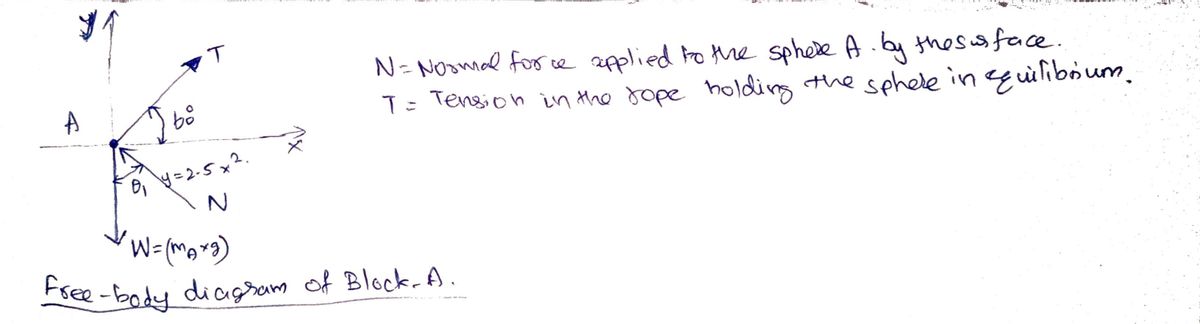 y
T
N = Normal force applied to the sphere A. by the surface.
T = Tension in the rope holding the sphere in equilibrium.
A
60°
x
y=2.5x².
θ₁
N
W=(mA×g)
Free-body diagram of Block-A.